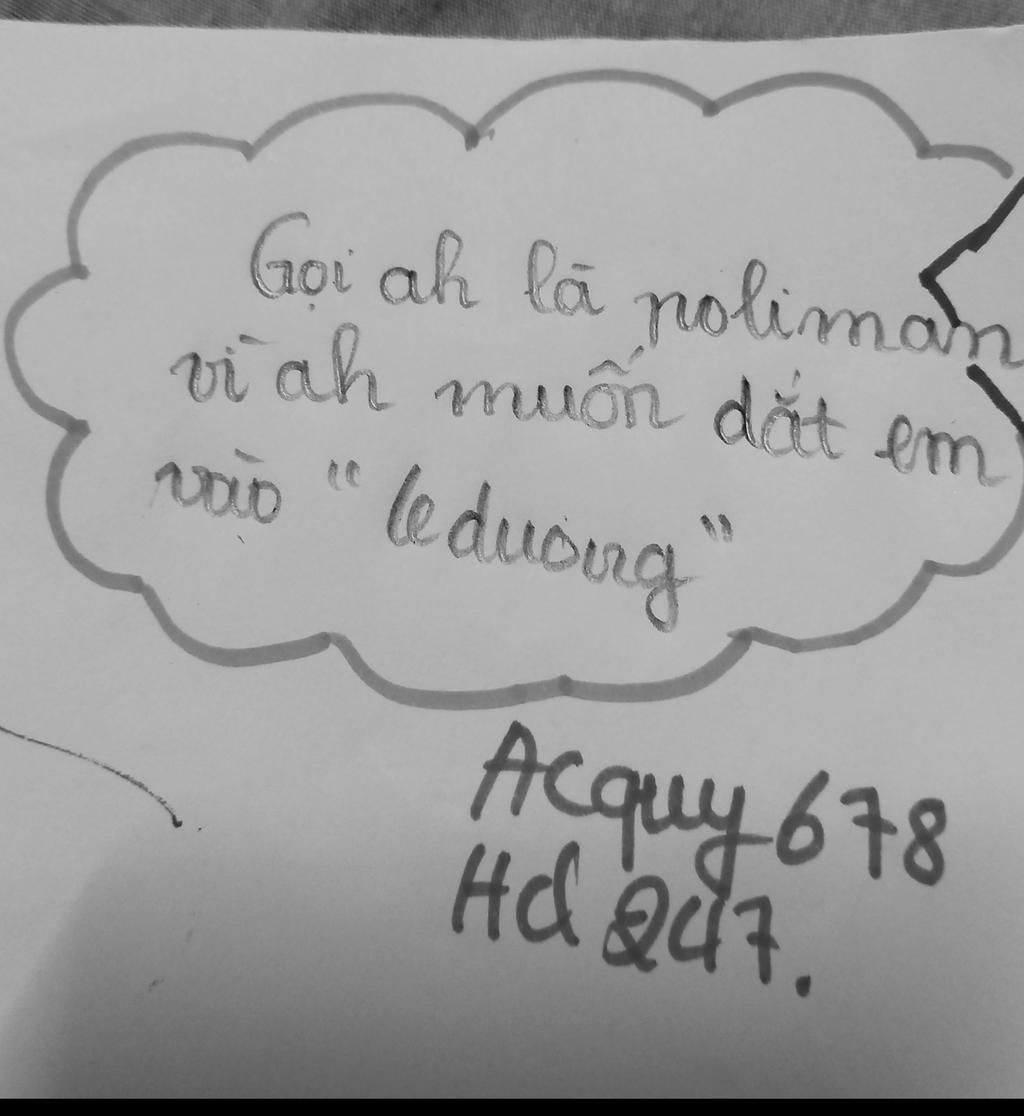 Gọi ah là polimam
vì ah muốn dắt em
vào " leduong "
Acquy 678
Hd 247.